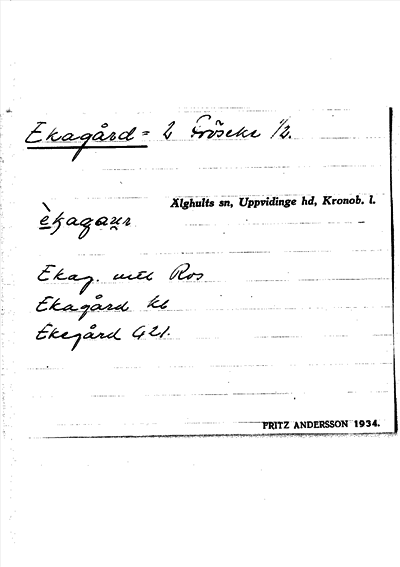 Ekagård = 2 Fröseke 1/2.
Älghults sn, Uppvidinge hd, Kronob. l.
Ekag. utt Ros
Ekagård kb
Ekegård G21.
FRITZ ANDERSSON 1934.